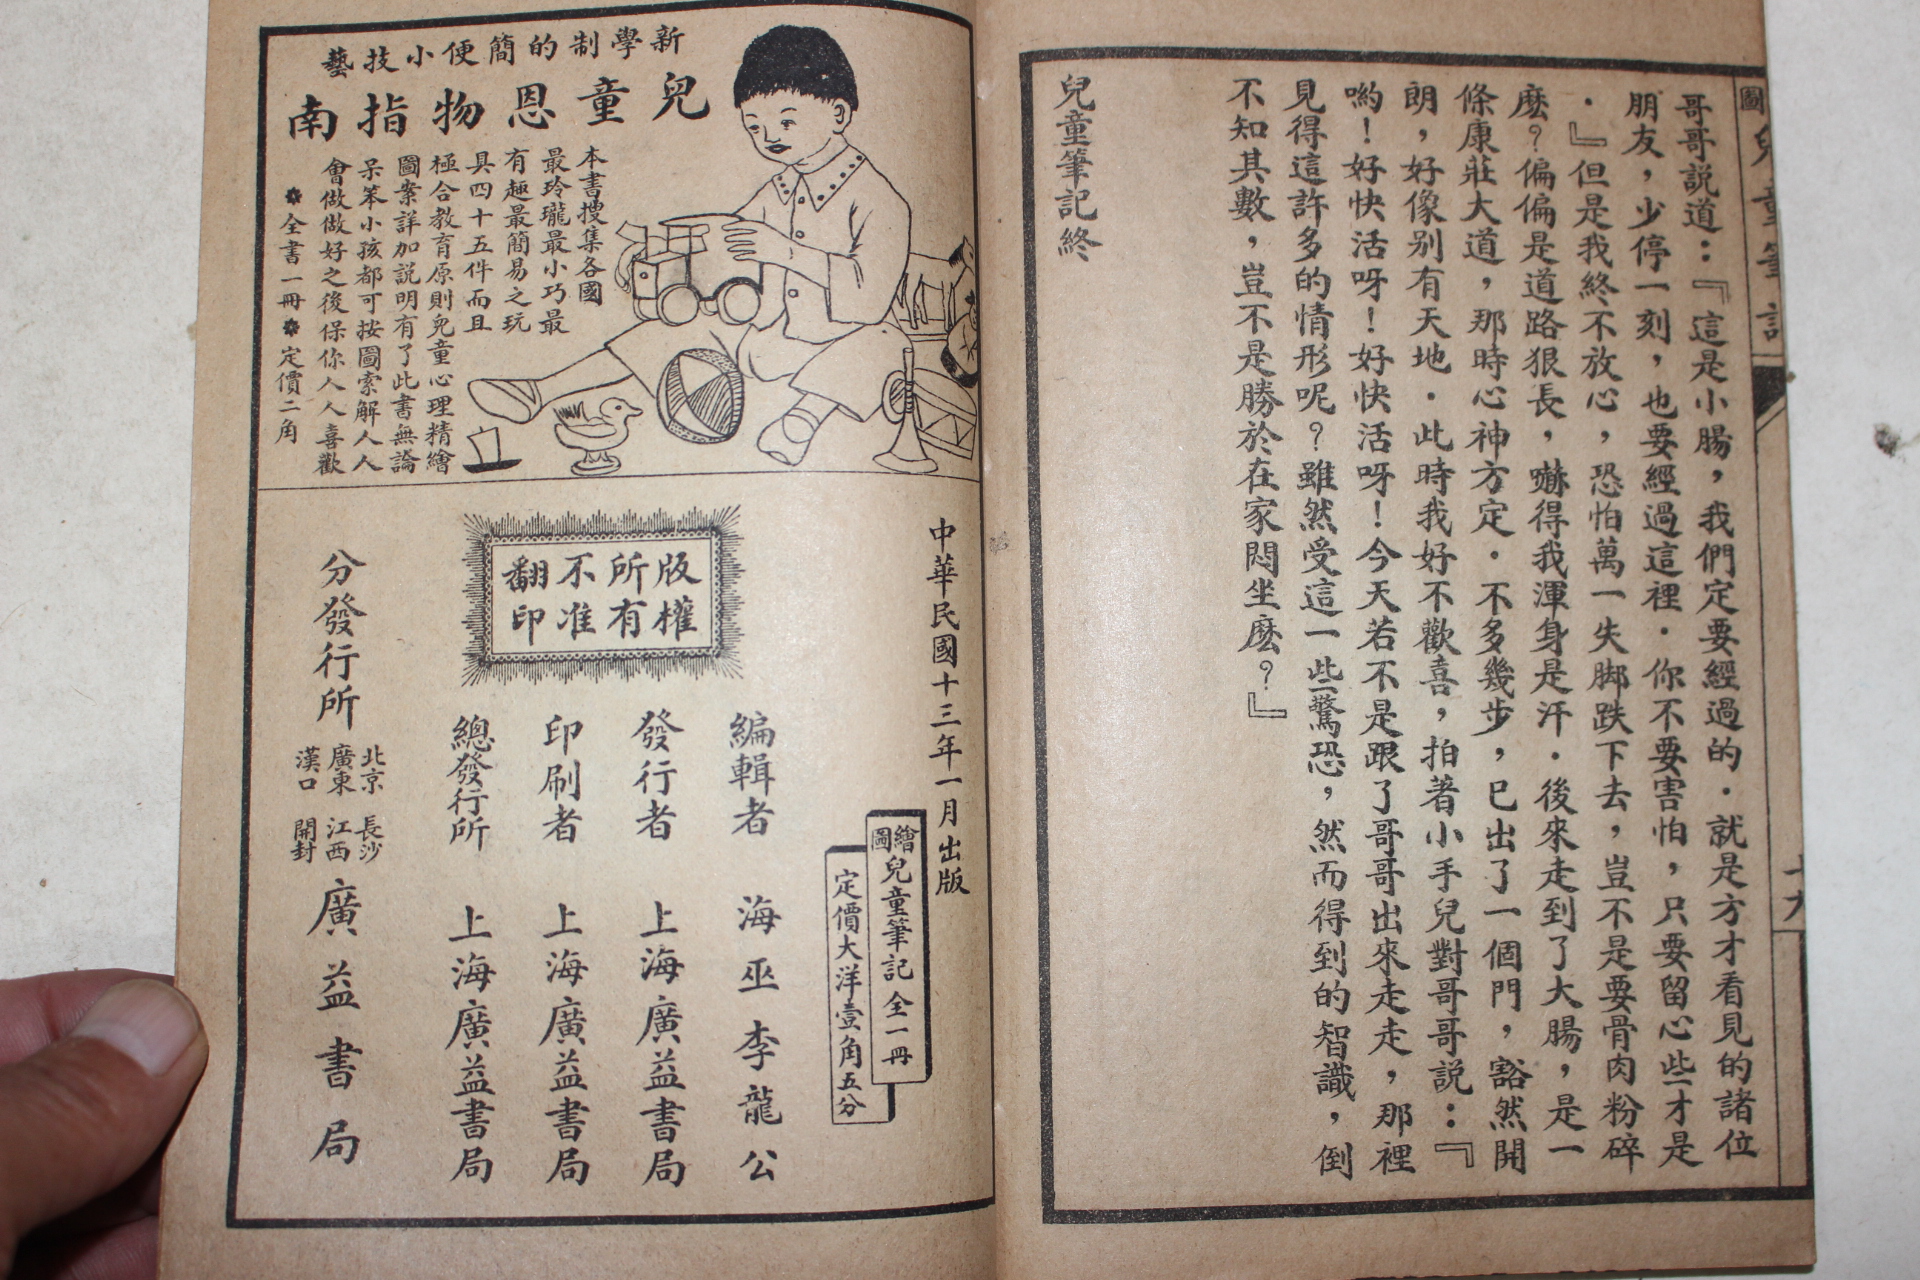 圖
兒童筆記
十九
哥哥説道：『這是小腸，我們定要經過的．就是方才看見的諸位
朋友，少停一刻，也要經過這裡．你不要害怕，只要留心些才是
．』但是我終不放心，恐怕萬一失脚跌下去，豈不是要骨肉粉碎
麽？偏偏是道路狠長，嚇得我渾身是汗．後來走到了大腸，是一
條康莊大道，那時心神方定．不多幾步，已出了一個門，豁然開
朗，好像别有天地．此時我好不歡喜，拍著小手兒對哥哥説：『
喲！好快活呀！好快活呀！今天若不是跟了哥哥出來走走，那裡
見得這許多的情形呢？雖然受這一些驚恐，然而得到的智識，倒
不知其數，豈不是勝於在家悶坐麽？』
兒童筆記終
新學制的簡便小技藝
兒童恩物指南
本書搜集各國
最玲瓏最小巧最
有趣最簡易之玩
具四十五件而且
極合教育原則兒童心理精繪
圖案詳加説明有了此書無論
呆笨小孩都可按圖索解人人
會做做好之後保你人人喜歡
全書一冊 定價二角
中華民國十三年一月出版
繪圖兒童筆記全一冊
定價大洋壹角五分
版權
所有
不准
翻印
編輯者 海巫李龍公
發行者 上海廣益書局
印刷者 上海廣益書局
總發行所 上海廣益書局
分發行所 北京 廣東 漢口 長沙 江西 開封 廣益書局